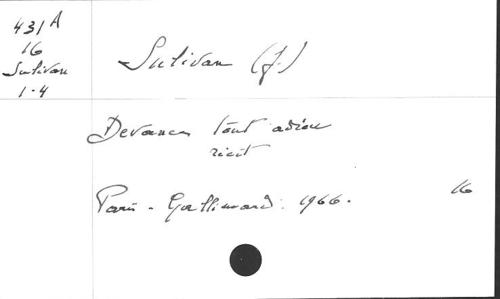 431 A
16
Sulivan
1-4
Sulivan (J.)
Devance tout adieu
récit
Paris - Gallimard. 1966.
16